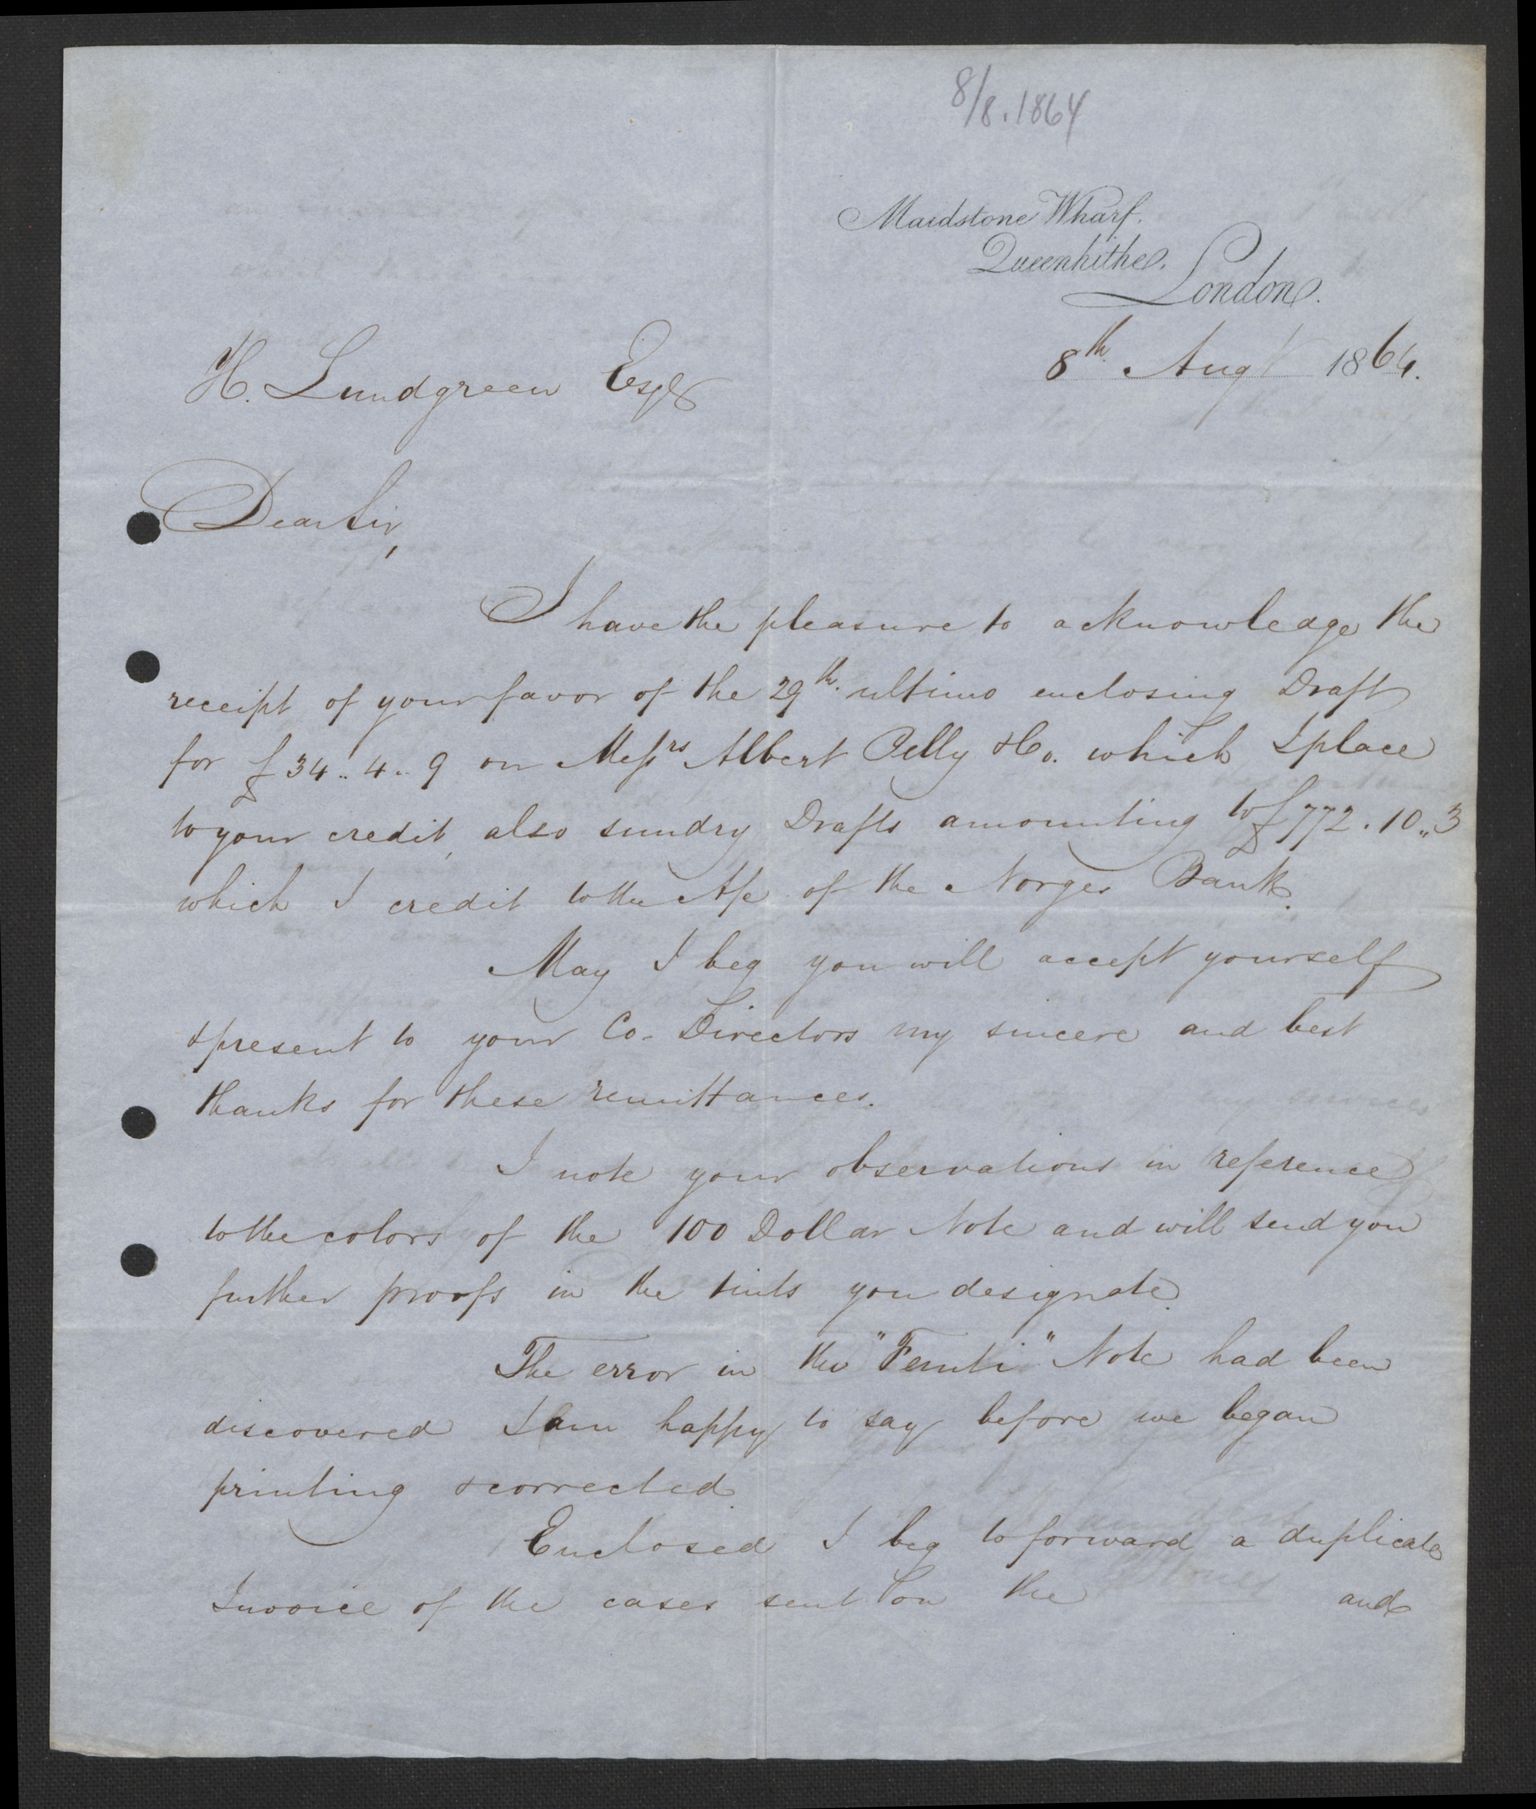 8/8.1864
Maidstone Wharf.
Queenhithe.
London.
8th. Augt 1864.
H. Lundgreen Esqr
Dear Sir,
I have the pleasure to acknowledge the
receipt of your favor of the 29th. ultimo enclosing Draft
for £34.. 4.. 9 on Messrs Albert Pelly & Co. which I place
to your credit, also sundry Drafts amounting to £772.10..3
which I credit to the A/c of the Norges Bank.
May I beg you will accept yourself
& present to your Co-Directors my sincere and best
thanks for these remittances.
I note your observations in reference
to the colors of the 100 Dollar Note and will send you
further proofs in the tints you designate.
The error in the "Femti" Note had been
discovered I am happy to say before we began
printing & corrected.
Enclosed I beg to forward a duplicate
Invoice of the cases sent on the and